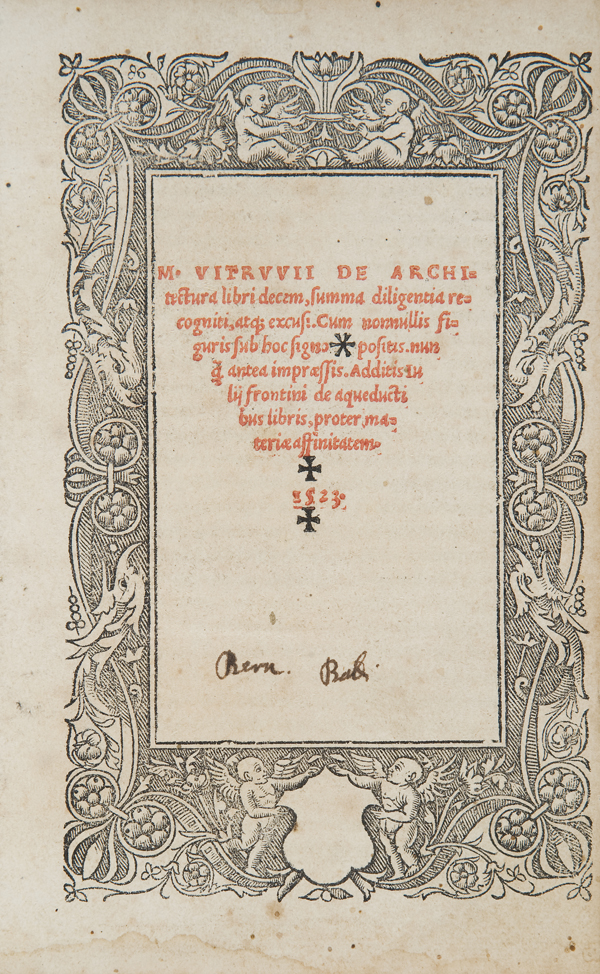 M. VITRVVII DE ARCHI-
tectura libri decem, summa diligentia re-
cogniti, atq; excusi. Cum nonnullis fi-
guris sub hoc signo * positis, nun
q̃ antea impræssis. Additis Iu
lij frontini de aqueducti
bus libris, propter, ma-
teriæ affinitatem.
✠
1523.
✠
Bern.